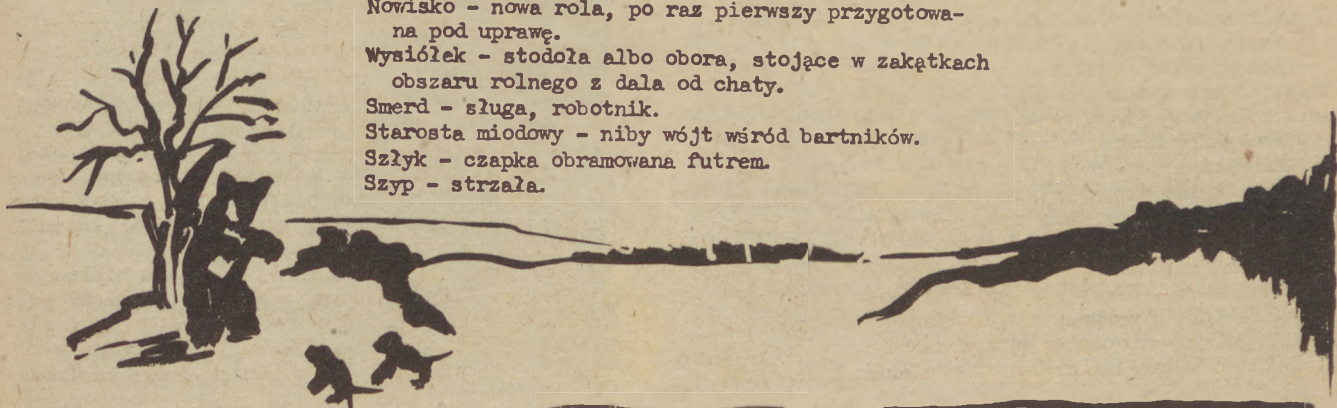 Nowisko - nowa rola, po raz pierwszy przygotowa-
na pod uprawę.
Wysiółek - stodoła albo obora, stojące w zakątkach
obszaru rolnego z dala od chaty.
Smerd - sługa, robotnik.
Starosta miodowy - niby wójt wśród bartników.
Szłyk - czapka obramowana futrem.
Szyp - strzała.